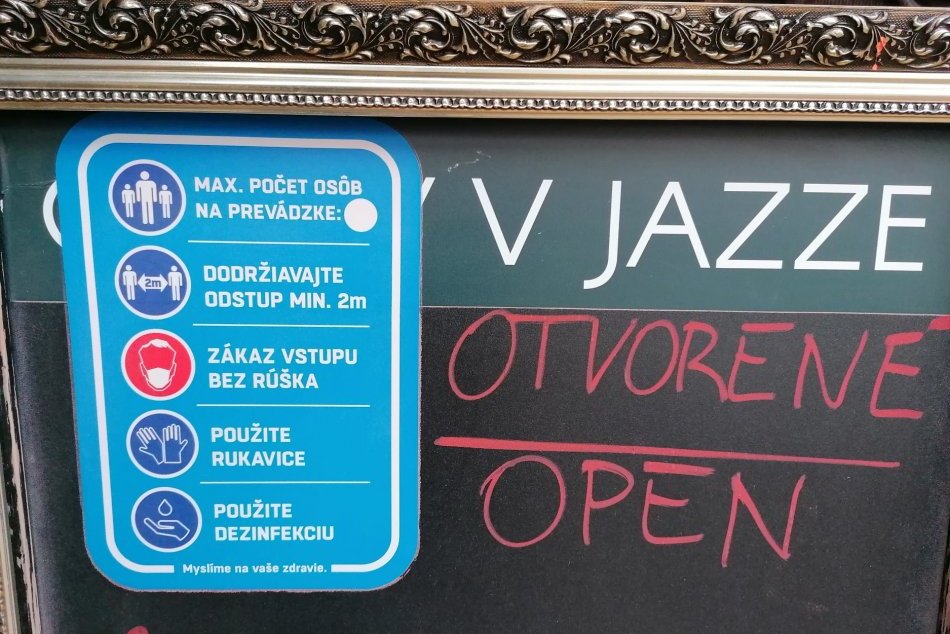 V JAZZE
MAX. POČET OSÔB
NA PREVÁDZKE:
2m
DODRŽIAVAJTE
ODSTUP MIN. 2m
ZÁKAZ VSTUPU
BEZ RÚŠKA
POUŽITE
RUKAVICE
POUŽITE
DEZINFEKCIU
Myslíme na vaše zdravie.
OTVORENÉ
OPEN